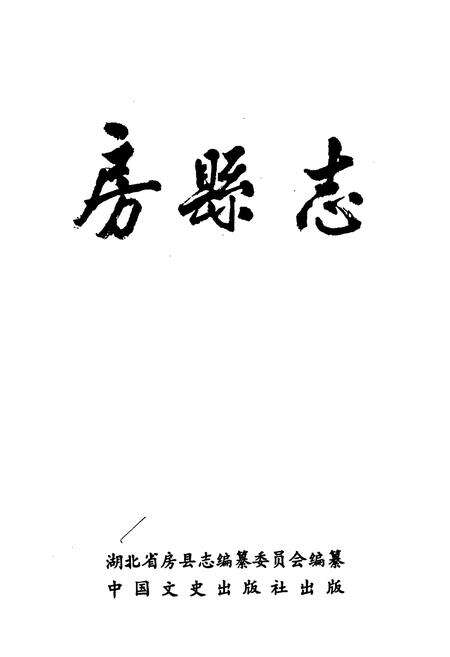 房縣志
湖北省房县志编纂委员会编纂
中国文史出版社出版